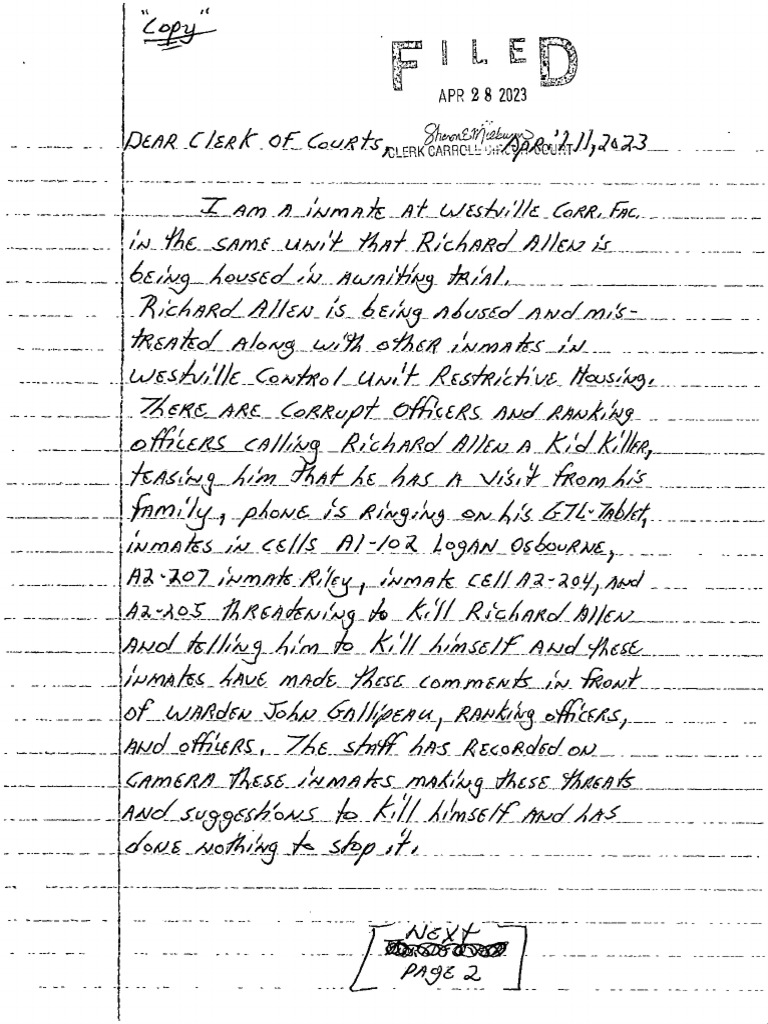 "Copy"
FILED
APR 28 2023
CLERK CARROLL CIRCUIT COURT
DEAR CLERK OF COURTS, April 11, 2023
I AM A INMATE AT WESTVILLE CORR. FAC.
in the SAME UNIT that RICHARD ALLEN is
being housed in AWAITING TRIAL.
RICHARD ALLEN is being ABUSED AND mis-
TREATED ALONG with other inmates in
WESTVILLE CONTROL UNIT RESTRICTIVE HOUSING.
THERE ARE CORRUPT OFFICERS AND RANKING
OFFICERS CALLING RICHARD ALLEN A Kid Killer,
TEASING him that he has A visit from his
family, phone is Ringing on his GTL-Tablet,
inmates in cells A1-102 LOGAN OSBOURNE,
A2-207 inmate Riley, inmate cell A2-204, AND
A2-205 THREATENING to Kill RICHARD ALLEN
AND telling him to Kill himself AND these
inmates have made these comments in front
of WARDEN JOHN GALLIPEAU, RANKING officers,
AND officers. The staff has RECORDED ON
CAMERA these inmates making these threats
AND suggestions to Kill himself AND has
done nothing to stop it.
NEXT
PAGE 2